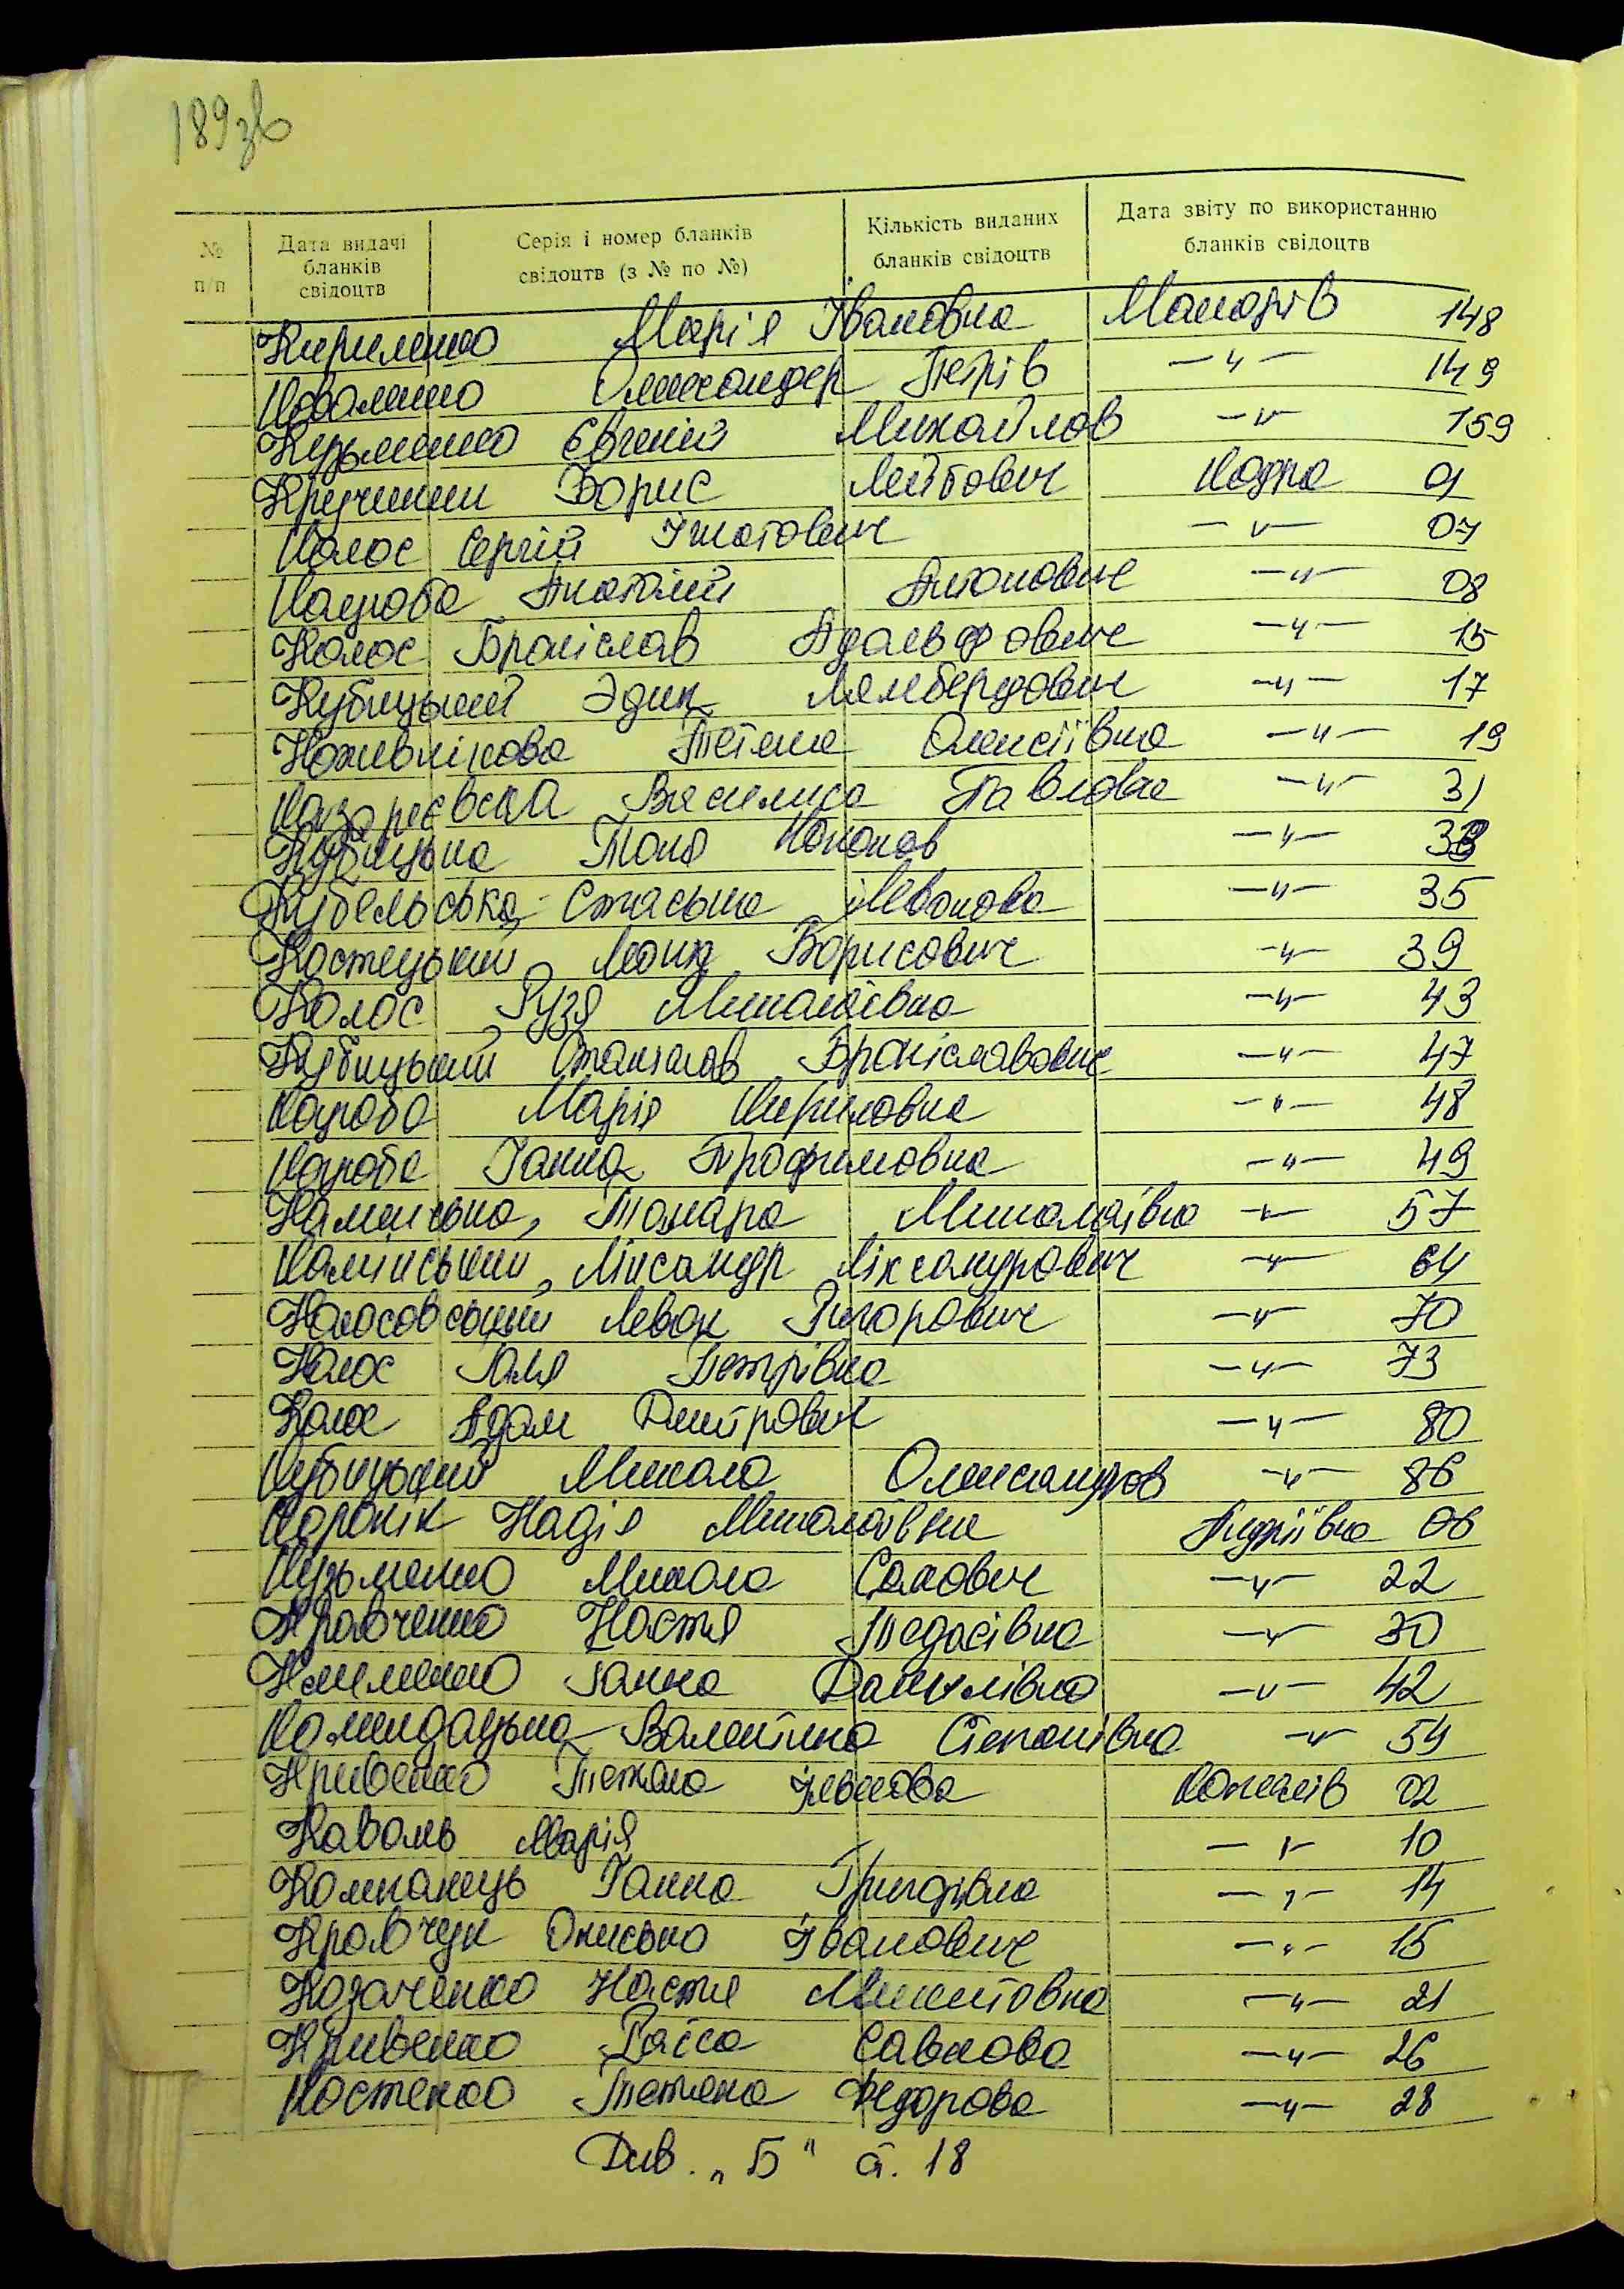 189зв
№ п/п Дата видачі бланків свідоцтв Серія і номер бланків свідоцтв (з № по №) Кількість виданих бланків свідоцтв Дата звіту по використанню бланків свідоцтв
Кириленко Марія Івановна Макарів 148
Коваленко Олександер Петрів — " — 149
Кузьменко Євгеній Михайлов — " — 159
Кручинин Борис Лейбович Кодра 01
Колос Сергій Ігнатович — " — 07
Кацюба Анатолій Антонович — " — 08
Колос Броніслав Адальфович — " — 15
Кубицький Эдик Лямбердович — " — 17
Кожевнікова Тетяна Олексіївна — " — 19
Назареєвська Василиса Павловна — " — 31
Кубицька Таня Кононов — " — 33
Кубельська Стасьика Левонова — " — 35
Костецький Леонід Борисович — " — 39
Колос Рузя Миколаївна — " — 43
Кубицький Станіслав Броніславович — " — 47
Кацюба Марія Кириловна — " — 48
Кацюба Ганна Трофимовна — " — 49
Камінська, Тамара Миколаївна — " — 57
Камінський, Ліксандр Ліксандрович — " — 64
Колосовський Левон Григорович — " — 70
Колос Юля Петрівна — " — 73
Колос Адам Дмитрович — " — 80
Кубицький Микола Олександров — " — 86
Коронік Надія Миколаївна Андріївка 06
Кузьменко Микола Савович — " — 22
Кравченко Настя Тедосівна — " — 30
Клименко Ганна Данилівна — " — 42
Комендацька Валентина Степанівна — " — 54
Кривенко Текла Ількова Копилів 02
Коваль Марія — " — 10
Компанець Ганна Григорівна — " — 14
Кравчук Онисько Іванович — " — 15
Козаченко Настя Микитовна — " — 21
Кривенко Раїса Савкова — " — 26
Костенко Тетяна Федорова — " — 28
Див. „Б" ст. 18